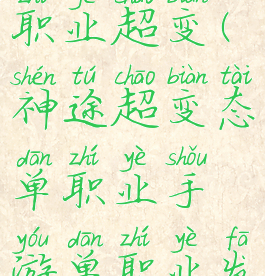 zhí yè chāo biàn
职业超变(
shén tú chāo biàn tài
神途超变态
dān zhí yè shǒu
单职业手
yóu dān zhí yè fā
游单职业发